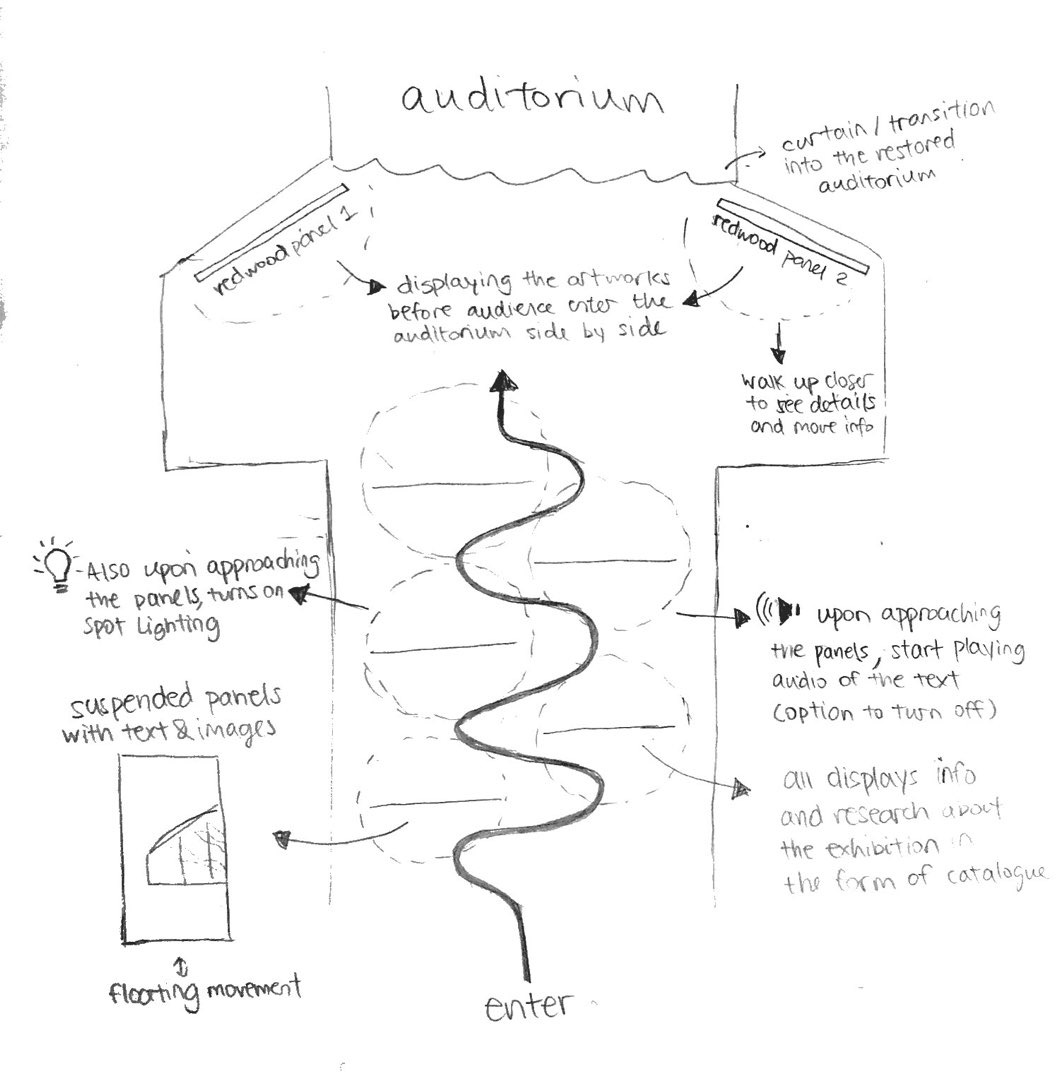 auditorium
curtain / transition
into the restored
auditorium
redwood panel 1
redwood panel 2
displaying the artworks
before audience enter the
auditorium side by side
walk up closer
to see details
and more info
Also upon approaching
the panels, turns on
spot lighting
upon approaching
the panels, start playing
audio of the text
(option to turn off)
suspended panels
with text & images
all displays info
and research about
the exhibition in
the form of catalogue
floating movement
enter